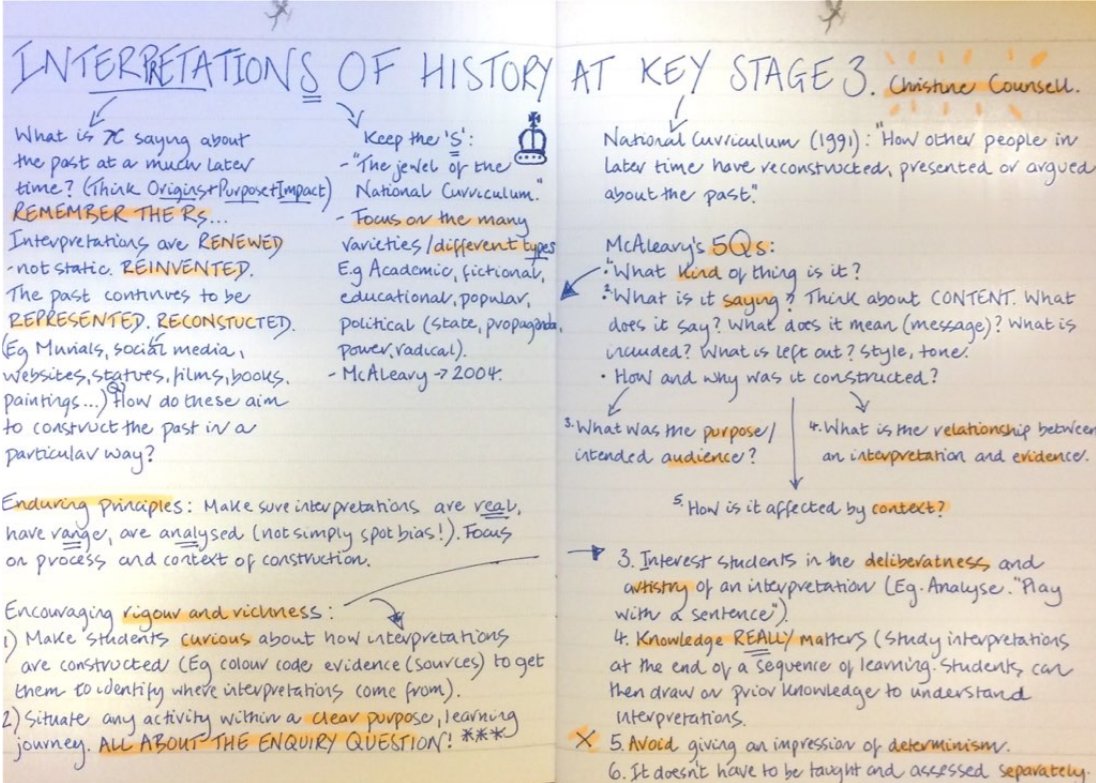 INTERPRETATIONS OF HISTORY AT KEY STAGE 3. Christine Counsell.
What is x saying about
the past at a much later
time? (Think Origins+Purpose+Impact)
REMEMBER THE Rs...
Interpretations are RENEWED
-not static. REINVENTED.
The past continues to be
REPRESENTED. RECONSTUCTED.
(Eg Murials, social media,
websites, statues, films, books,
paintings...) Q How do these aim
to construct the past in a
particular way?
Keep the 'S':
- "The jewel of the
National Curriculum."
- Focus on the many
varieties/different types
E.g Academic, fictional,
educational, popular,
political (state, propaganda,
power, radical).
- McAleavy → 2004.
Enduring principles: Make sure interpretations are real,
have range, are analysed (not simply spot bias!). Focus
on process and context of construction.
Encouraging rigour and richness:
1) Make students curious about how interpretations
are constructed (Eg colour code evidence (sources) to get
them to identify where interpretations come from).
2) Situate any activity within a clear purpose, learning
journey. ALL ABOUT THE ENQUIRY QUESTION! ***
National Curriculum (1991): "How other people in
later time have reconstructed, presented or argued
about the past."
McAleary's 5Qs:
1. "What kind of thing is it?
2. What is it saying? Think about CONTENT. What
does it say? What does it mean (message)? What is
included? What is left out? Style, tone.
• How and why was it constructed?
3. What was the purpose/
intended audience?
4. What is the relationship between
an interpretation and evidence.
5. How is it affected by context?
→ 3. Interest students in the deliberatness and
artistry of an interpretation (Eg. Analyse. "Play
with a sentence").
4. Knowledge REALLY matters (Study interpretations
at the end of a sequence of learning. Students can
then draw on prior knowledge to understand
interpretations.
X 5. Avoid giving an impression of determinism.
6. It doesn't have to be taught and assessed separately.